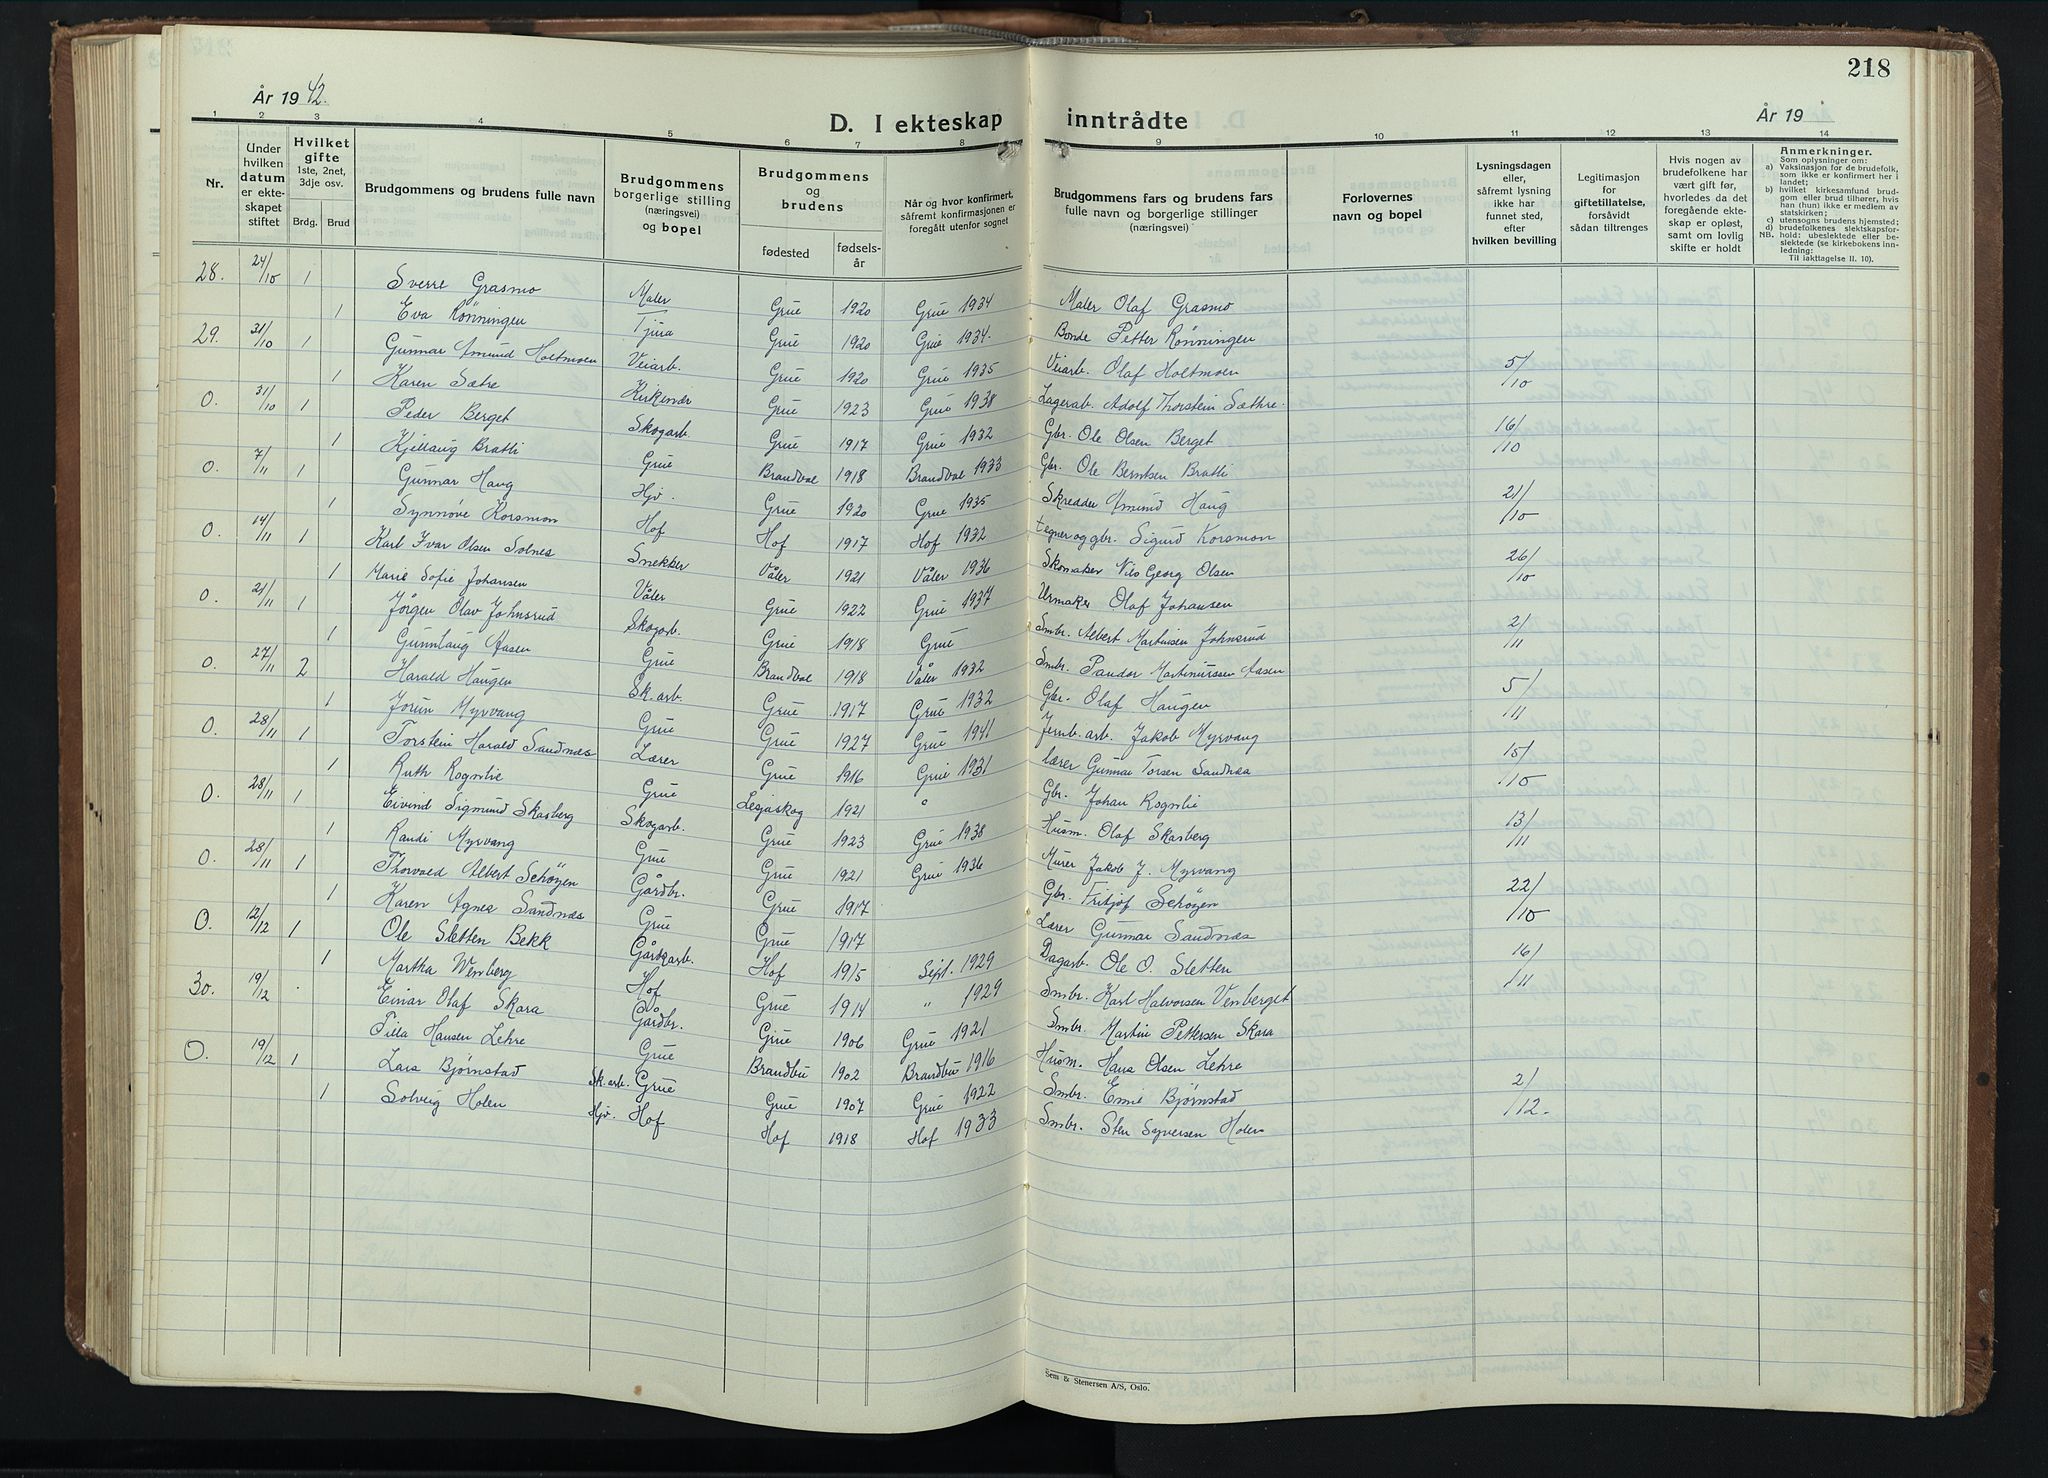 218
År 1942.
D. I ekteskap inntrådte
År 19
1 2 3 4 5 6 7 8 9 10 11 12 13 14
Nr.
Under hvilken datum er ekteskapet stiftet
Hvilket gifte 1ste, 2net, 3dje osv.
Brdg. Brud
Brudgommens og brudens fulle navn
Brudgommens borgerlige stilling (næringsvei) og bopel
Brudgommens og brudens
fødested
fødselsår
Når og hvor konfirmert, såfremt konfirmasjonen er foregått utenfor sognet
Brudgommens fars og brudens fars fulle navn og borgerlige stillinger (næringsvei)
Forlovernes navn og bopel
Lysningsdagen eller, såfremt lysning ikke har funnet sted, efter hvilken bevilling
Legitimasjon for giftetillatelse, forsåvidt sådan tiltrenges
Hvis nogen av brudefolkene har vært gift før, hvorledes da det foregående ekteskap er opløst, samt om lovlig skifte er holdt
Anmerkninger.
Som oplysninger om:
a) Vaksinasjon for de brudefolk, som ikke er konfirmert her i landet;
b) hvilket kirkesamfund brudgom eller brud tilhører, hvis han (hun) ikke er medlem av statskirken;
c) utensogns brudens hjemsted;
d) brudefolkenes slektskapsforhold: ubeslektede eller beslektede (se kirkebokens innledning:
NB.
Til iakttagelse II. 10).
28. 24/10 1 Sverre Grasmo Maler Grue 1920 Grue 1934 Maler Olaf Grasmo
1 Eva Rønningen Tjura Grue 1920 Grue 1934. Bonde Petter Rønningen
29. 31/10 1 Gunnar Amund Holtmoen Veiarb. Grue 1920 Grue 1935 Veiarb. Olaf Holtmoen 5/10
1 Karen Sætre Kirkenær Grue 1923 Grue 1938 Lagerarb. Adolf Thorstein Sæthre.
0. 31/10 1 Peder Berget Skogarb. Grue 1917 Grue 1932 Gbr. Ole Olsen Berget 16/10
1 Kjellaug Bratli Grue Brandval 1918 Brandval 1933 Gbr. Ole Berntsen Bratli
0. 7/11 1 Gunnar Haug Hjv. Grue 1920 Grue 1935 Skredder Amund Haug 21/10
1 Synnøve Korsmon Hof Hof 1917 Hof 1932 tegner og gbr. Sigurd Korsmon
0. 14/11 1 Karl Ivar Olsen Solnes Snekker Våler 1921 Våler 1936 Skomaker Nils Georg Olsen 26/10
1 Marie Sofie Johansen Våler Grue 1922 Grue 1937 Urmaker Olaf Johansen
0. 21/11 1 Jørgen Olav Johnsrud Skogarb. Grue 1918 Grue Smbr. Albert Martinsen Johnsrud 2/11
1 Gunnlaug Aasen Grue Brandval 1918 Våler 1932 Smbr. Martinussen Aasen
0. 27/11 2 Harald Haugen Sk.arb. Grue 1917 Grue 1932 Gbr. Olaf Haugen 5/11
1 Jorun Myrvang Grue Grue 1927 Grue 1941 Jernb.arb. Jakob Myrvang
0. 28/11 1 Torstein Harald Sandnæs Lærer Grue 1916 Grue 1931 lærer Gunnar Torsen Sandnæs 15/10
1 Ruth Rognlie Grue Lesjaskog 1921 Gbr. Johan Rognlie
0. 28/11 1 Eivind Sigmund Skasberg Skogarb. Grue 1923 Grue 1938 Husm. Olaf Skasberg 13/11
1 Randi Myrvang Grue Grue 1921 Grue 1936 Murer Jakob J. Myrvang
0. 28/11 1 Thorvald Albert Schøyen Gårdbr. Grue 1917 Gbr. Fritjof Schøyen 22/10
1 Karen Agnes Sandnæs Grue Grue 1917 Lærer Gunnar Sandnæs
0. 12/12 1 Ole Sletten Bekk Gårdsarb Hof 1915 Sept. 1929 Dagarb. Ole O. Sletten 16/11
1 Martha Wemberg Hof Grue 1914 " 1929 Smbr. Karl Halvorsen Vemberget
30. 19/12 Einar Olaf Skara Gårdbr. Grue 1906 Grue 1921 Smbr. Martin Pettersen Skara
Tilla Hansen Lehre Grue Brandbu 1902 Brandbu 1916 Husm. Hans Olsen Lehre
0. 19/12 1 Lars Bjørnstad Sk.arb. Grue Grue 1907 Grue 1922 Smbr. Bjørnstad 2/12.
1 Solveig Holen Hjv. Hof Hof 1918 Hof 1933 Smbr. Sten Syversen Holen
Sem & Stenersen A/S, Oslo.